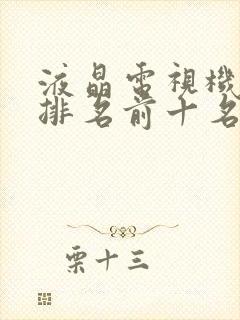 液晶電視機
排名前十名
栗十三